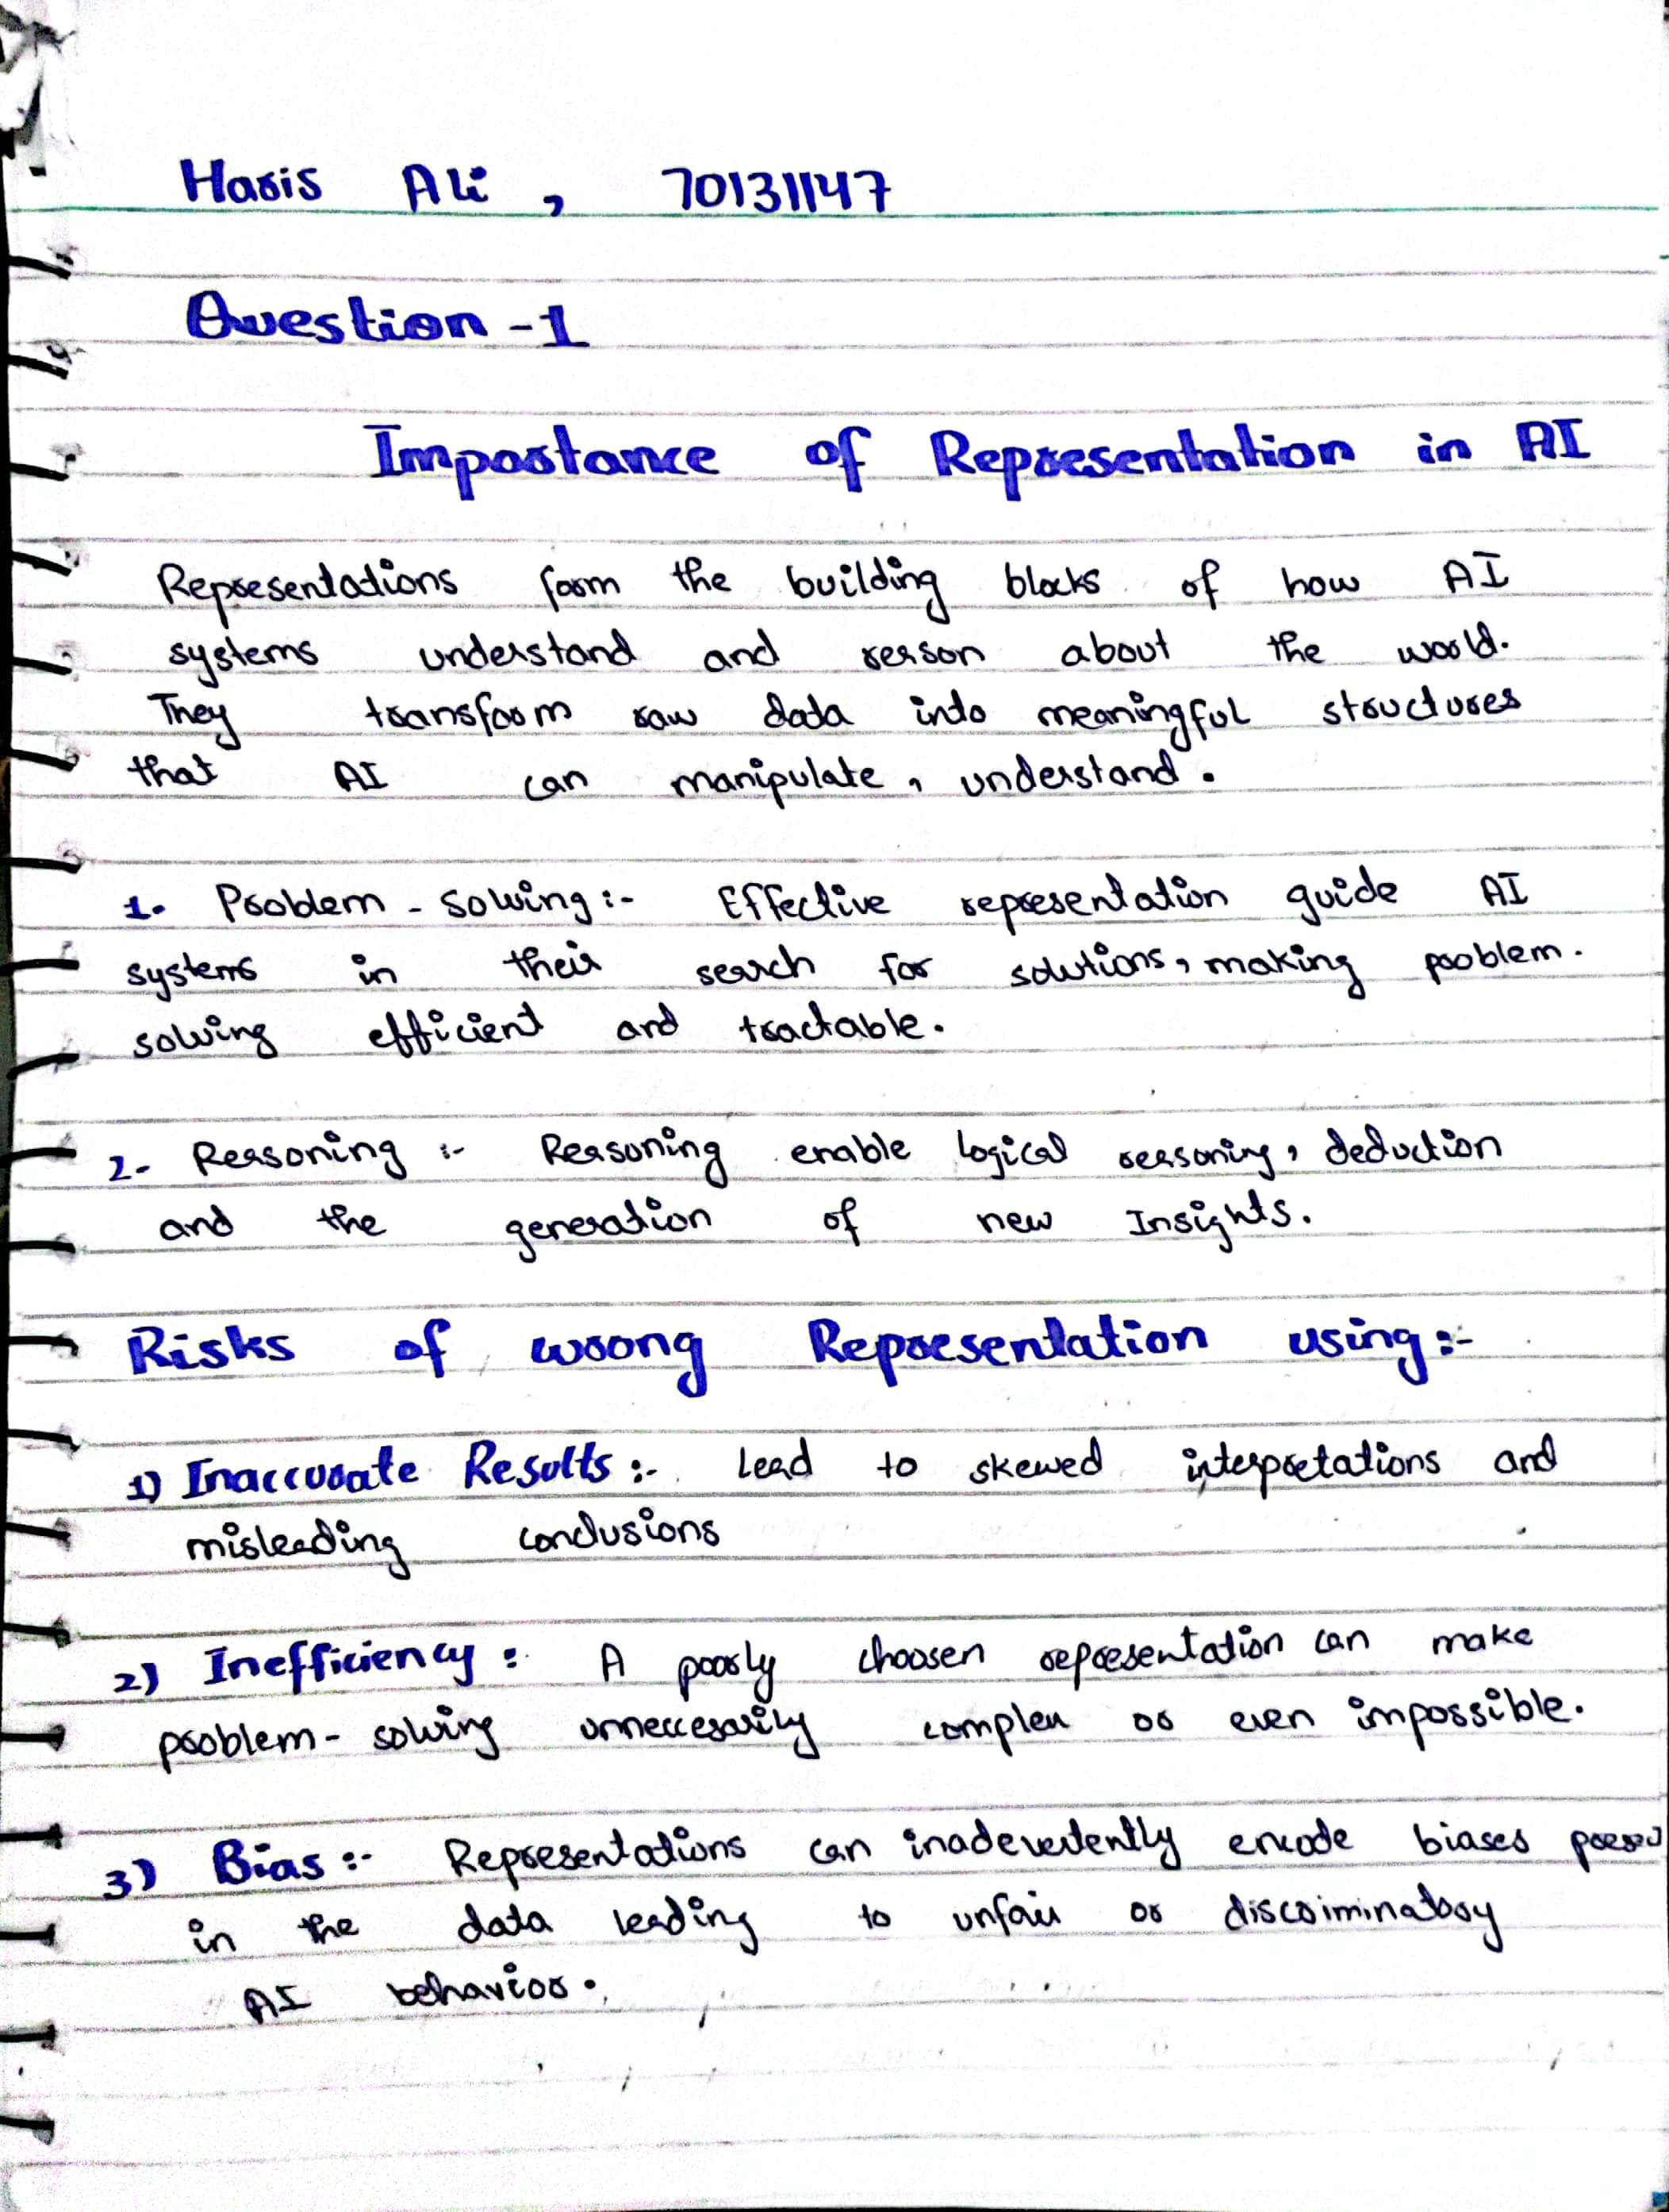 Haris Ali , 70131147
Question - 1
Importance of Representation in AI
Representations form the building blocks of how AI
systems understand and reason about the world.
They transform raw data into meaningful structures
that AI can manipulate, understand.
1. Problem - solving :- Effective representation guide AI
systems in their search for solutions, making problem -
solving efficient and tractable.
2- Reasoning :- Reasoning enable logical reasoning, deduction
and the generation of new Insights.
Risks of wrong Representation using :-
1) Inaccurate Results :- Lead to skewed interpretations and
misleading conclusions
2) Inefficiency : A poorly choosen representation can make
problem - solving unneccesarily complex or even impossible.
3) Bias :- Representations can inadevertently encode biases
in the data leading to unfair or discriminatory
AI behavior.